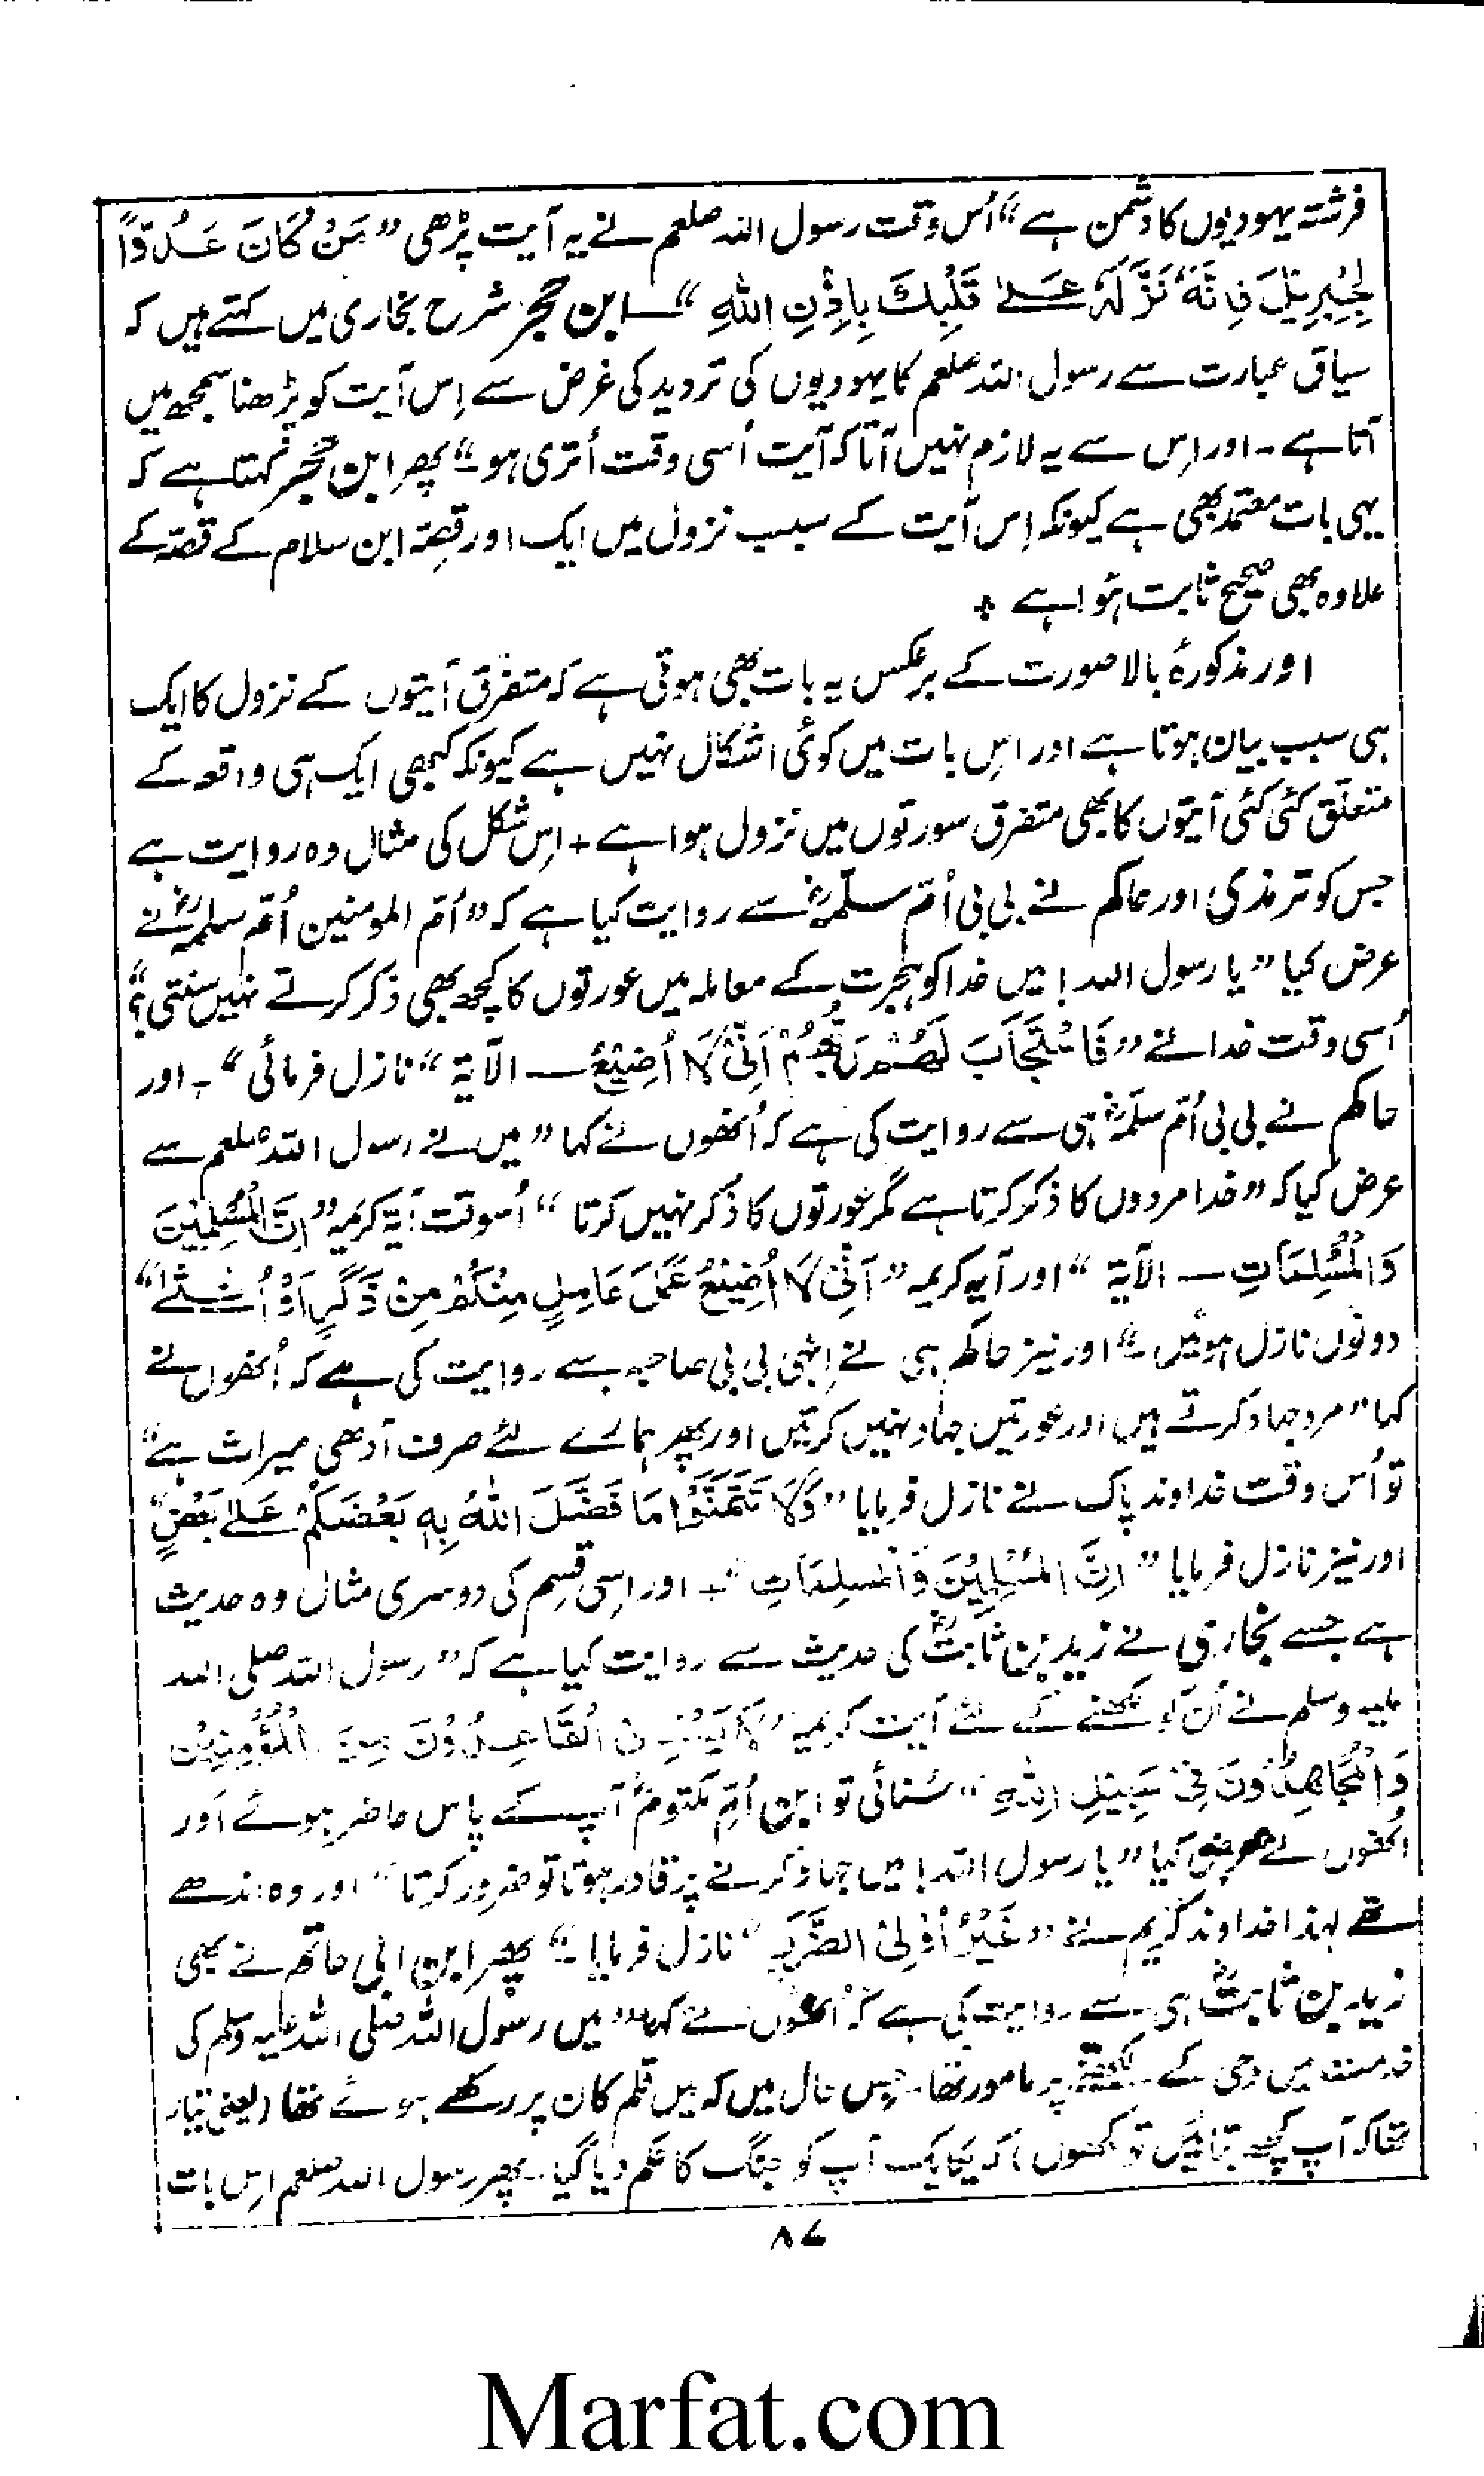 فرشتہ یہودیوں کا دشمن ہے“ اُس وقت رسول اللہ صلعم نے یہ آیت پڑھی ”مَنْ كَانَ عَدُوًّا
لِجِبْرِيْلَ فَاِنَّهٗ نَزَّلَهٗ عَلٰے قَلْبِكَ بِاِذْنِ اللّٰهِ“ ــ ابن حجر شرح بخاری میں کہتے ہیں کہ
سیاق عبارت سے رسول اللہ صلعم کا یہودیوں کی تردید کی غرض سے اِس آیت کو پڑھنا سمجھ میں
آتا ہے۔ اور اِس سے یہ لازم نہیں آتا کہ آیت اُسی وقت اُتری ہو“ پھر ابن حجر کہتا ہے کہ
یہی بات معتمد بھی ہے کیونکہ اِس آیت کے سبب نزول میں ایک اور قصّہ ابن سلام کے قصّہ کے
علاوہ بھی صحیح ثابت ہُوا ہے +
اور مذکورۂ بالا صورت کے برعکس یہ بات بھی ہوتی ہے کہ متفرق آیتوں کے نزول کا ایک
ہی سبب بیان ہوتا ہے اور اِس بات میں کوئی اشکال نہیں ہے کیونکہ کبھی ایک ہی واقعہ کے
متعلّق کئی کئی آیتوں کا بھی متفرق سورتوں میں نزول ہوا ہے + اِس شکل کی مثال وہ روایت ہے
جس کو ترمذی اور حاکم نے بی بی اُمّ سلمہؓ سے روایت کیا ہے کہ ”اُمّ المومنین اُمّ سلمہؓ نے
عرض کیا ”یا رسول اللہ! میں خدا کو ہجرت کے معاملہ میں عورتوں کا کچھ بھی ذکر کرتے نہیں سنتی؟“
اُسی وقت خدا نے ”فَاسْتَجَابَ لَهُمْ رَبُّهُمْ اَنِّیْ لَا اُضِیْعُ ــ الآیۃ“ نازل فرمائی“۔ اور
حاکم نے بی بی اُمّ سلمہؓ ہی سے روایت کی ہے کہ اُنھوں نے کہا ”میں نے رسول اللہ صلعم سے
عرض کیا کہ ”خدا مردوں کا ذکر کرتا ہے مگر عورتوں کا ذکر نہیں کرتا“ اُسوقت آیۃ کریمہ ”اِنَّ الْمُسْلِمِیْنَ
وَالْمُسْلِمَاتِ ــ الآیۃ“ اور آیہ کریمہ ”اَنِّیْ لَا اُضِیْعُ عَمَلَ عَامِلٍ مِنْكُمْ مِنْ ذَكَرٍ اَوْ اُنْثٰے“
دونوں نازل ہوئیں“ اور نیز حاکم ہی نے اِنہی بی بی صاحبہ سے روایت کی ہے کہ اُنھوں نے
کہا ”مرد جہاد کرتے ہیں اور عورتیں جہاد نہیں کرتیں اور پھر ہمارے لئے صرف آدھی میراث ہے“
تو اُس وقت خداوند پاک نے نازل فرمایا ”وَلَا تَتَمَنَّوْا مَا فَضَّلَ اللّٰهُ بِهٖ بَعْضَكُمْ عَلٰے بَعْضٍ“
اور نیز نازل فرمایا ”اِنَّ الْمُسْلِمِیْنَ وَالْمُسْلِمَاتِ“ + اور اِسی قسم کی دوسری مثال وہ حدیث
ہے جسے بخاری نے زید بن ثابتؓ کی حدیث سے روایت کیا ہے کہ ”رسول اللہ صلی اللہ
علیہ وسلم نے اُن کو لکھنے کے لئے آیت کریمہ ”لَا یَسْتَوِی الْقَاعِدُوْنَ مِنَ الْمُؤْمِنِیْنَ
وَالْمُجَاهِدُوْنَ فِیْ سَبِیْلِ اللّٰهِ“ سُنائی تو ابن اُمّ مکتومؓ آپ کے پاس حاضر ہوئے اور
اُنھوں نے عرض کیا ”یا رسول اللہ! میں جہاد کرنے پر قادر ہوتا تو ضرور کرتا“ اور وہ اندھے
تھے لہذا خداوند کریم نے ”غَیْرُ اُولِی الضَّرَرِ“ نازل فرمایا“ پھر ابن ابی حاتم نے بھی
زید بن ثابتؓ ہی سے روایت کی ہے کہ اُنھوں نے کہا ”میں رسول اللہ صلی اللہ علیہ وسلم کی
خدمت میں وحی کے لکھنے پر مامور تھا۔ جس حال میں کہ میں قلم کان پر رکھے ہوئے تھا (یعنی تیار
تھا کہ آپ کچھ بتائیں تو لکھوں) کہ یکایک آپ کو جنگ کا حکم دیا گیا۔ پھر رسول اللہ صلعم اِس بات
۸۷
Marfat.com